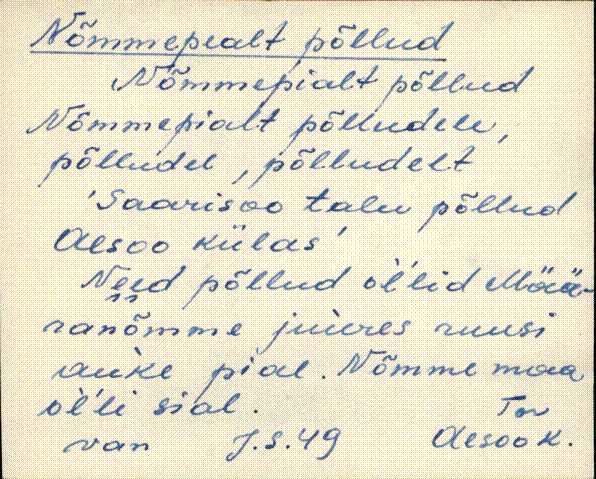 Nõmmepealt põllud
Nõmmepialt põllud
Nõmmepialt põlludele,
põlludel, põlludelt
'Saarisoo talu põllud
Aesoo külas'
Need põllud òl'lid Mää-
ranõmme juures ruusi
auke pial. Nõmme maa
òl'li sial. Tor
van J.S.49 Aesoo k.